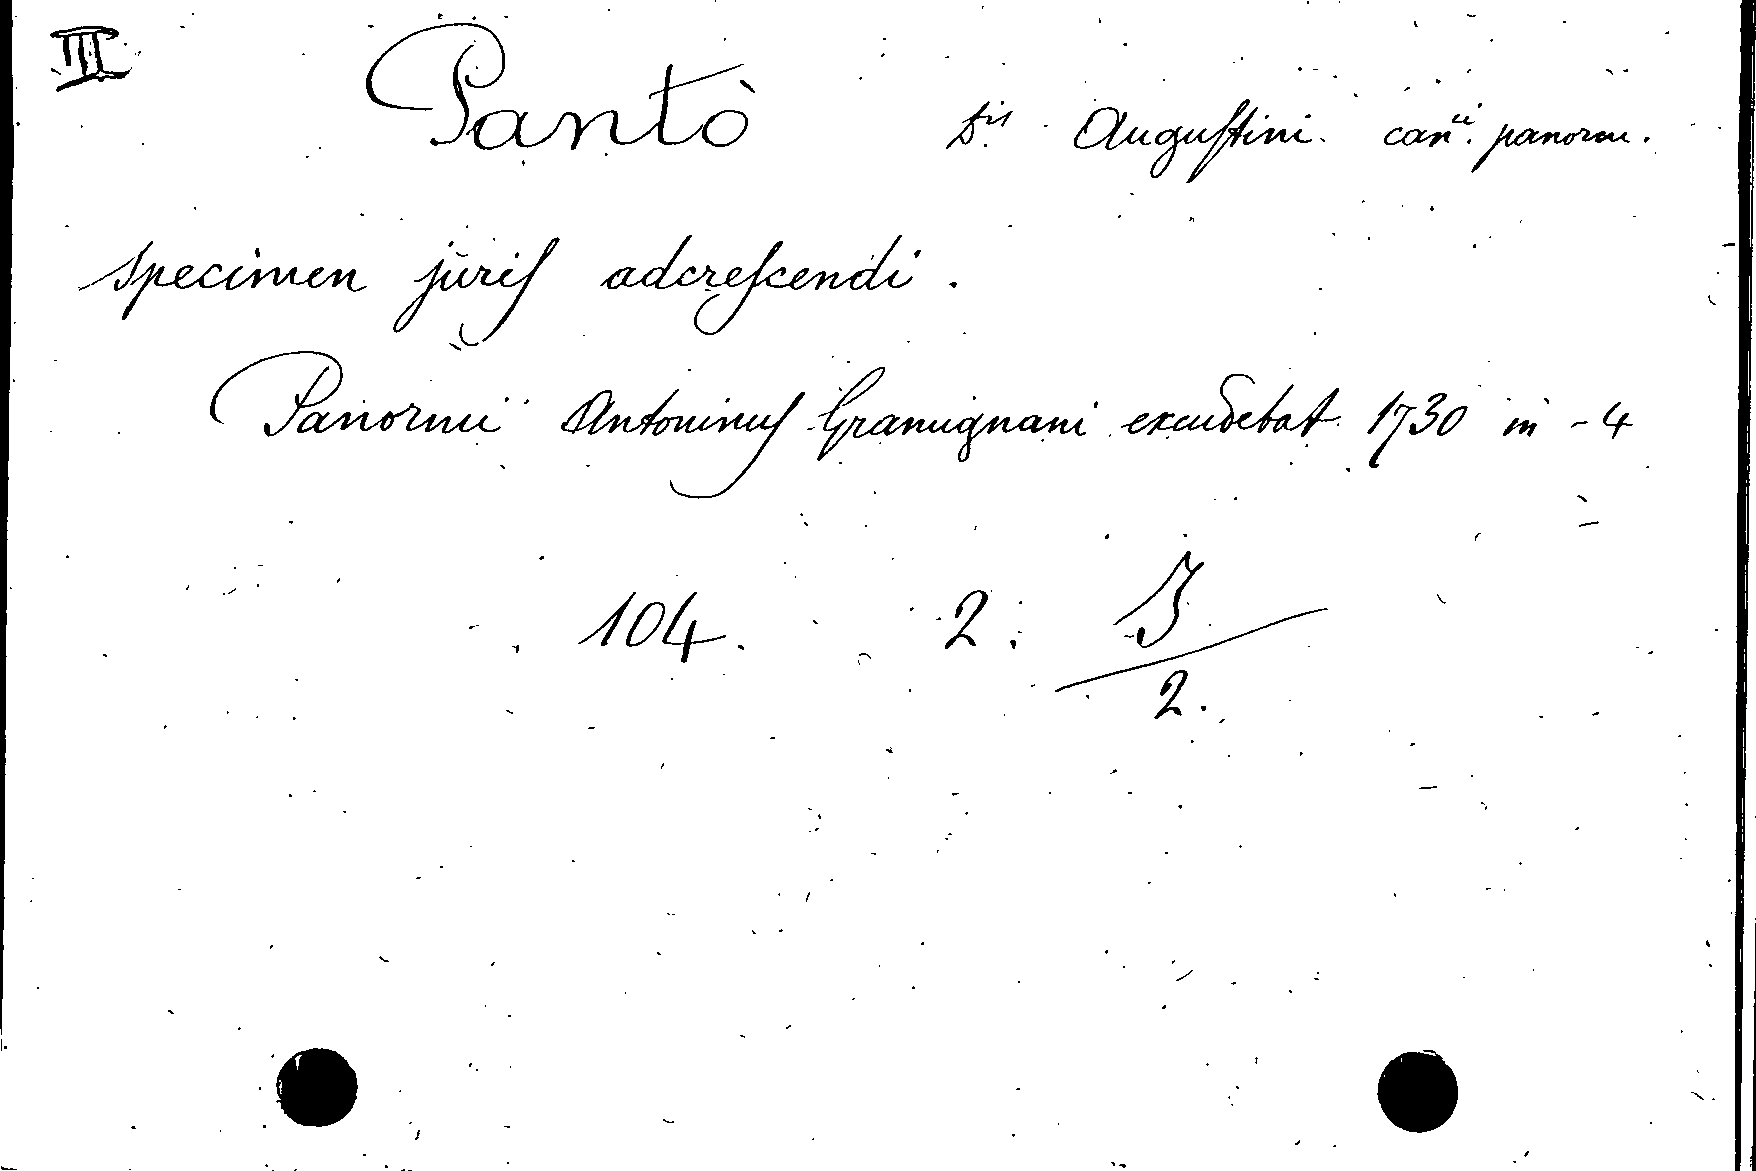 III
Pantò D.ris Auguſtini. can.ci panorm.
specimen juriſ adcreſcendi.
Panormi Antoninuſ Gramignani excudebat 1730 in-4
104. 2. I
2.